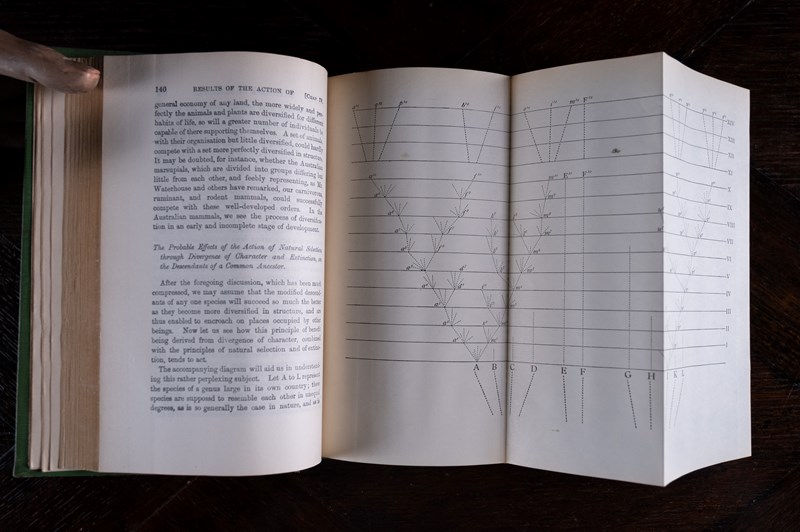 140 RESULTS OF THE ACTION OF [CHAP. IV.
general economy of any land, the more widely and per-
fectly the animals and plants are diversified for different
habits of life, so will a greater number of individuals be
capable of there supporting themselves. A set of animals,
with their organisation but little diversified, could hardly
compete with a set more perfectly diversified in structure.
It may be doubted, for instance, whether the Australian
marsupials, which are divided into groups differing but
little from each other, and feebly representing, as Mr.
Waterhouse and others have remarked, our carnivorous,
ruminant, and rodent mammals, could successfully
compete with these well-developed orders. In the
Australian mammals, we see the process of diversifica-
tion in an early and incomplete stage of development.
The Probable Effects of the Action of Natural Selection
through Divergence of Character and Extinction, on
the Descendants of a Common Ancestor.
After the foregoing discussion, which has been much
compressed, we may assume that the modified descend-
ants of any one species will succeed so much the better
as they become more diversified in structure, and are
thus enabled to encroach on places occupied by other
beings. Now let us see how this principle of benefit
being derived from divergence of character, combined
with the principles of natural selection and of extinc-
tion, tends to act.
The accompanying diagram will aid us in understand-
ing this rather perplexing subject. Let A to L represent
the species of a genus large in its own country; these
species are supposed to resemble each other in unequal
degrees, as is so generally the case in nature, and as is
XIV
XIII
XII
XI
X
IX
VIII
VII
VI
V
IV
III
II
I
A B C D E F G H K L